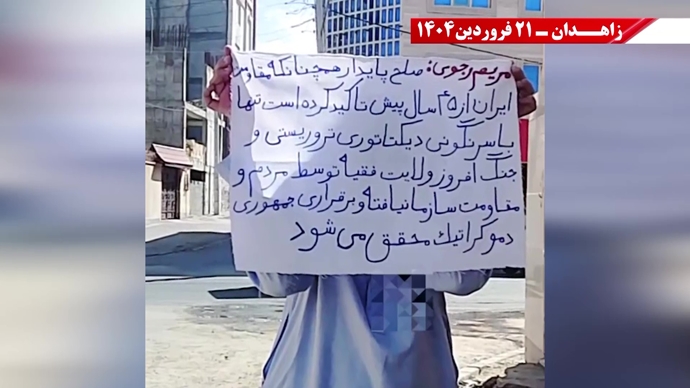 زاهـدان ـ ۲۱ فروردین۱۴۰۴
مریم رجوی: صلح پایدار همچنانکه مقاومت
ایران از ۴۵ سال پیش تأکید کرده است تنها
با سرنگونی دیکتاتوری تروریستی و
جنگ افروز ولایت فقیه توسط مردم و
مقاومت سازمانیافته و برقراری جمهوری
دموکراتیک محقق می شود